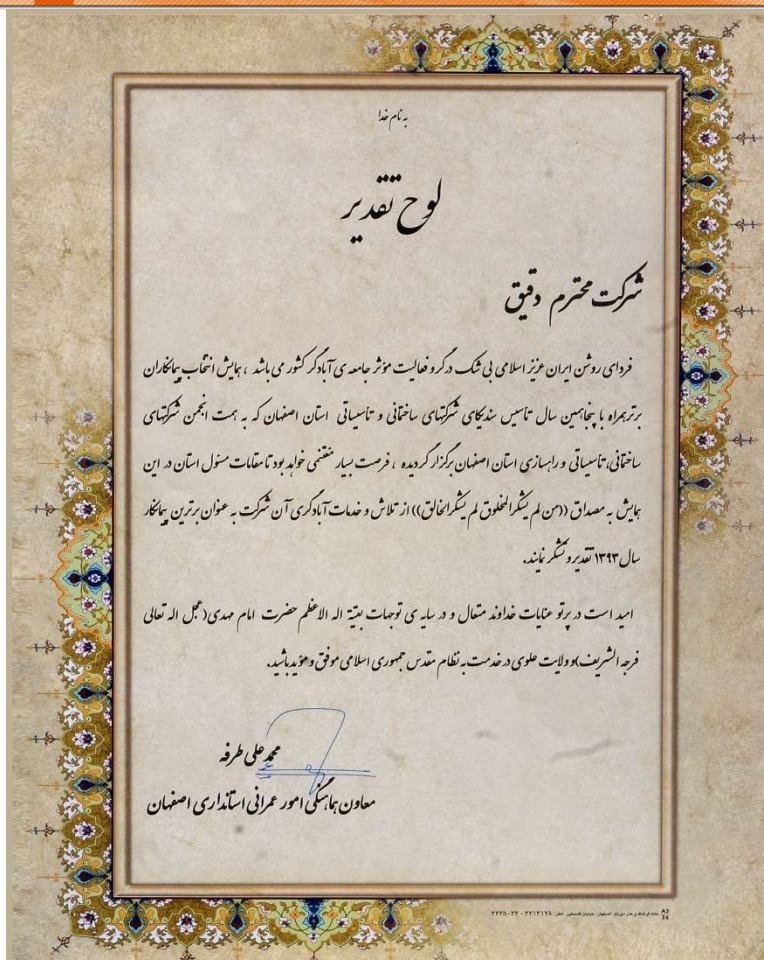 به نام خدا
لوح تقدیر
شرکت محترم دقیق
فردای روشن ایران عزیز اسلامی بی شک درگرو فعالیت مؤثر جامعه ی آبادگر کشور می باشد ، همایش انتخاب پیمانکاران
برتر همراه با پنجاهمین سال تأسیس سندیکای شرکتهای ساختمانی و تأسیساتی استان اصفهان که به همت انجمن شرکتهای
ساختمانی، تأسیساتی و راهسازی استان اصفهان برگزار گردیده ، فرصت بسیار مغتنمی خواهد بود تا مقامات مسئول استان در این
همایش به مصداق ((من لم یشکر المخلوق لم یشکر الخالق)) از تلاش و خدمات آبادگری آن شرکت به عنوان برترین پیمانکار
سال ۱۳۹۳ تقدیر و تشکر نمایند.
امید است در پرتو عنایات خداوند متعال و در سایه ی توجهات بقیة اله الاعظم حضرت امام مهدی(عجل اله تعالی
فرجه الشریف)و ولایت علوی در خدمت به نظام مقدس جمهوری اسلامی موفق و مؤید باشید.
محمد علی طرفه
معاون هماهنگی امور عمرانی استانداری اصفهان
اصفهان، خیابان فلسطین، تلفن: ۲۲۱۳۱۷۸ - ۲۲۲۵۰۲۲
A3